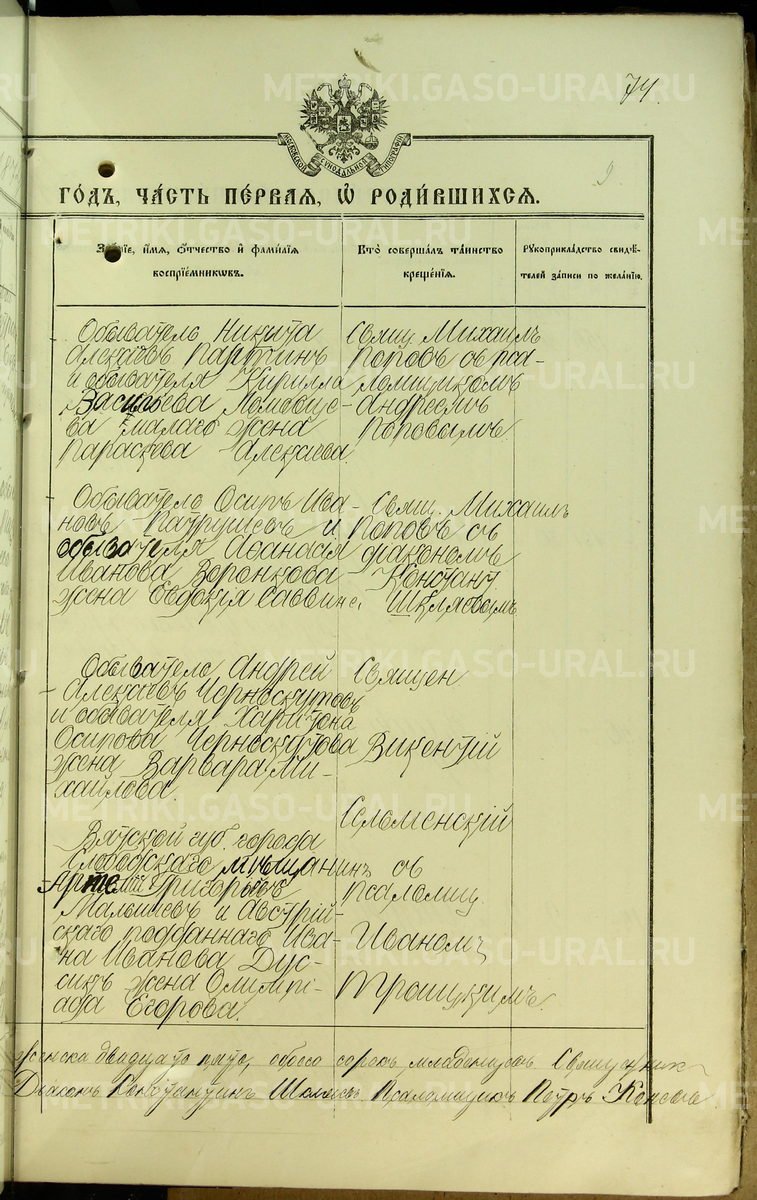 METRIKI.GASO-URAL.RU
74.
МОСКОВСКОЙ СѴНОДАЛЬНОЙ ТИПОГРАФІИ
9
ГОДЪ, ЧАСТЬ ПЕРВАЯ, Ѡ РОДИВШИХСЯ.
Званіе, имя, отчество и фамилія воспріемниковъ.
Кто совершалъ таинство крещенія.
Рукоприкладство свидѣтелей записи по желанію.
Обыватель Никита
Алексѣевъ Партинъ
и обывателя Кирилла
Васильева
малаго жена
Параскева Алексѣева.
Свящ. Михаилъ
Поповъ съ пса-
ломщикомъ
Андреемъ
Поповымъ.
Обыватель Осипъ Ива-
новъ Патрушевъ и
обывателя Аѳанасія
Иванова Воронкова
жена Евдокія Саввина.
Свящ. Михаилъ
Поповъ съ
діакономъ
Констант.
Шкляевымъ
Обыватель Андрей
Алексѣевъ Черноскутовъ
и обывателя Харитона
Осипова Черноскутова
жена Варвара Ми-
хайлова.
Вятской губ. города
Слободскаго мѣщанинъ
Артемій Григорьевъ
Малышевъ и Австрій-
скаго подданнаго Ива-
на Иванова Дус-
сикъ жена Олимпі-
ада Егорова.
Священ.
Викентій
Селоменскій
съ
псаломщ.
Иваномъ
Троицкимъ.
женска двадцать пять, обоего сорокъ младенцевъ. Священник
Діаконъ Константинъ Псаломщикъ Петръ